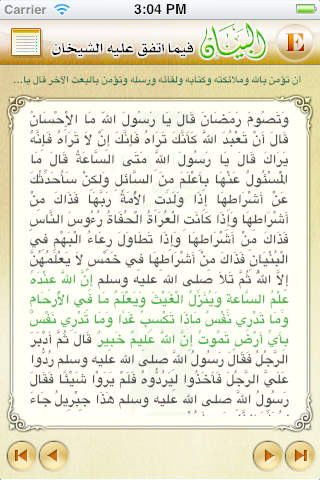 Carrier 3:04 PM
البيان فيما اتفق عليه الشيخان E
ان تؤمن بالله وملائكته وكتابه ولقائه ورسله وتؤمن بالبعث الآخر قال يا...
وَتَصُومَ رَمَضَانَ قَالَ يَا رَسُولَ اللَّهِ مَا الْإِحْسَانُ
قَالَ أَنْ تَعْبُدَ اللَّهَ كَأَنَّكَ تَرَاهُ فَإِنَّكَ إِنْ لَا تَرَاهُ فَإِنَّهُ
يَرَاكَ قَالَ يَا رَسُولَ اللَّهِ مَتَى السَّاعَةُ قَالَ مَا
الْمَسْئُولُ عَنْهَا بِأَعْلَمَ مِنَ السَّائِلِ وَلَكِنْ سَأُحَدِّثُكَ
عَنْ أَشْرَاطِهَا إِذَا وَلَدَتِ الْأَمَةُ رَبَّهَا فَذَاكَ مِنْ
أَشْرَاطِهَا وَإِذَا كَانَتِ الْعُرَاةُ الْحُفَاةُ رُءُوسَ النَّاسِ
فَذَاكَ مِنْ أَشْرَاطِهَا وَإِذَا تَطَاوَلَ رِعَاءُ الْبَهْمِ فِي
الْبُنْيَانِ فَذَاكَ مِنْ أَشْرَاطِهَا فِي خَمْسٍ لَا يَعْلَمُهُنَّ
إِلَّا اللَّهُ ثُمَّ تَلَا صلى الله عليه وسلم إِنَّ اللَّهَ عِنْدَهُ
عِلْمُ السَّاعَةِ وَيُنَزِّلُ الْغَيْثَ وَيَعْلَمُ مَا فِي الْأَرْحَامِ
وَمَا تَدْرِي نَفْسٌ مَاذَا تَكْسِبُ غَدًا وَمَا تَدْرِي نَفْسٌ
بِأَيِّ أَرْضٍ تَمُوتُ إِنَّ اللَّهَ عَلِيمٌ خَبِيرٌ قَالَ ثُمَّ أَدْبَرَ
الرَّجُلُ فَقَالَ رَسُولُ اللَّهِ صلى الله عليه وسلم رُدُّوا
عَلَيَّ الرَّجُلَ فَأَخَذُوا لِيَرُدُّوهُ فَلَمْ يَرَوْا شَيْئًا فَقَالَ
رَسُولُ اللَّهِ صلى الله عليه وسلم هَذَا جِبْرِيلُ جَاءَ